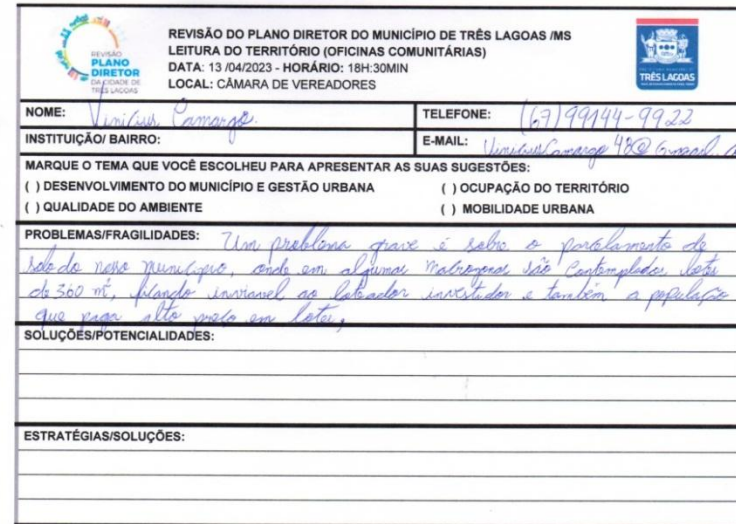 REVISÃO
PLANO
DIRETOR
DA CIDADE DE
TRÊS LAGOAS
REVISÃO DO PLANO DIRETOR DO MUNICÍPIO DE TRÊS LAGOAS /MS
LEITURA DO TERRITÓRIO (OFICINAS COMUNITÁRIAS)
DATA: 13 /04/2023 - HORÁRIO: 18H:30MIN
LOCAL: CÂMARA DE VEREADORES
TRÊS LAGOAS
NOME: Vinicius Camargo.
TELEFONE: (67) 99144-9922
INSTITUIÇÃO/ BAIRRO:
E-MAIL: ViniciusCamargo 48@Gmail.
MARQUE O TEMA QUE VOCÊ ESCOLHEU PARA APRESENTAR AS SUAS SUGESTÕES:
( ) DESENVOLVIMENTO DO MUNICÍPIO E GESTÃO URBANA ( ) OCUPAÇÃO DO TERRITÓRIO
( ) QUALIDADE DO AMBIENTE ( ) MOBILIDADE URBANA
PROBLEMAS/FRAGILIDADES: Um problema grave é sobre o parcelamento de
solo do nosso município, onde em algumas Macrozonas são Contemplados lotes
de 360 m², ficando inviavel ao loteador investidor e também a população
que paga alto preço em lotes,
SOLUÇÕES/POTENCIALIDADES:
ESTRATÉGIAS/SOLUÇÕES: